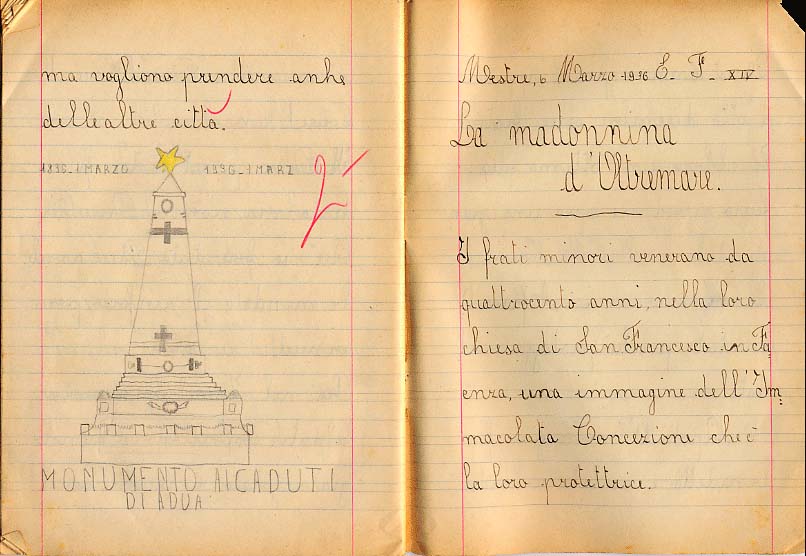 ma vogliono prendere anhe
delle altre città.
1896-1 MARZO 1936-1 MARZ
MONUMENTO AI CADUTI
DI ADUA
Mestre, 6 Marzo 1936 E. F. XIV
La madonnina
d'Oltremare.
I frati minori venerano da
quattrocento anni, nella loro
chiesa di San Francesco in Fa,
enza, una immagine dell'Im,
macolata Concezione che è
la loro protettrice.